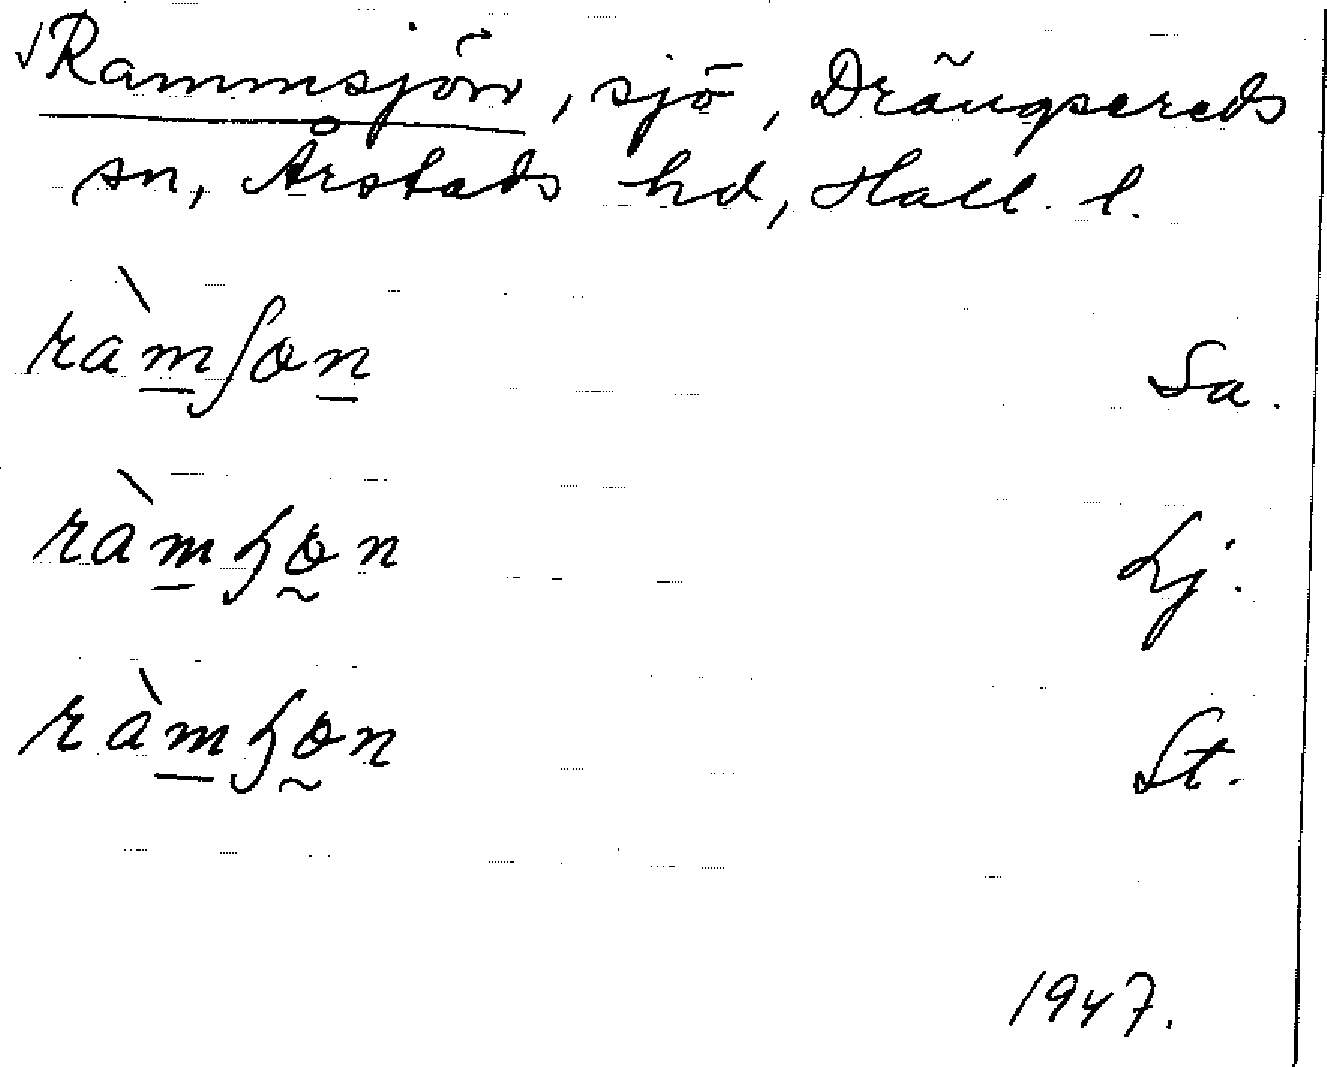 √Rammsjön, sjö, Drängsereds
sn, Årstads hd, Hall. l.
ràmʃɷn Sa.
ràmɧɷn Lj.
ràmɧɷn St.
1947.